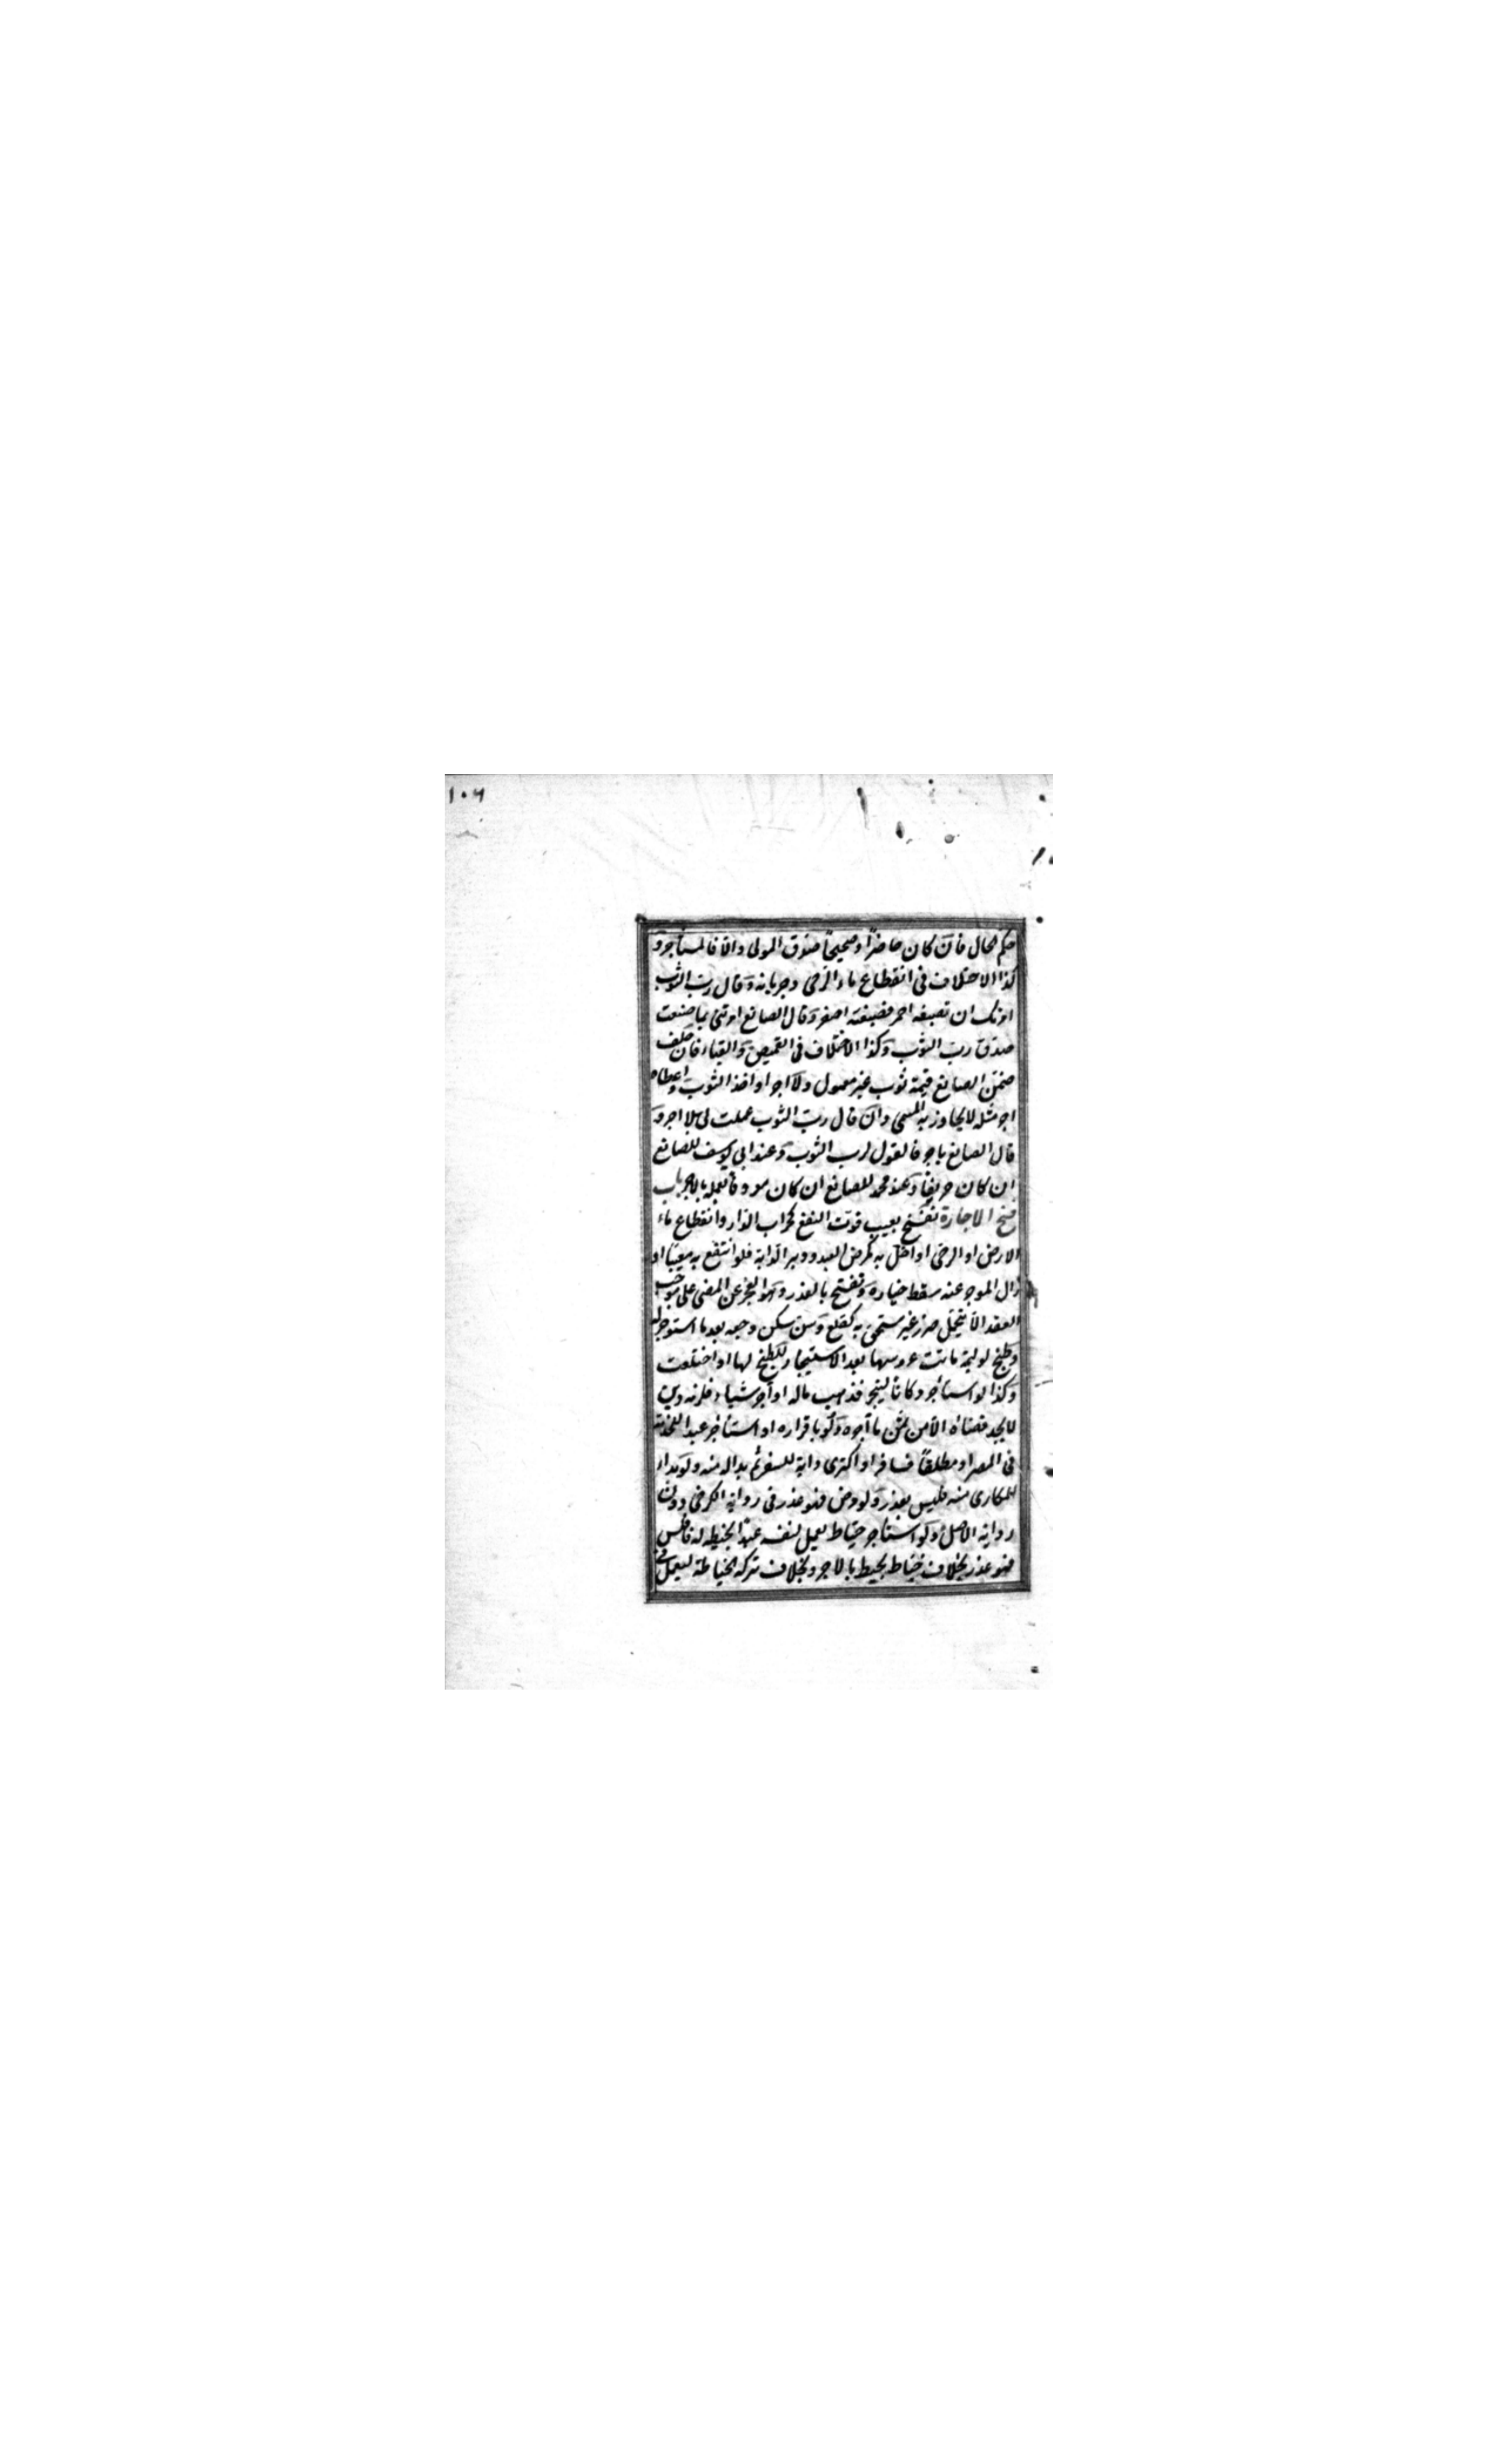 ١٠٦
حكم الحال فان كان حاضرا وصحيحا صدق المولى والا فالمستأجر و
كذا الاختلاف في انقطاع ماء الرحى وجريانه وقال رب الثوب
امرتك ان تصبغه احمر فصبغته اصفر وقال الصانع امرتني بما صنعت
صدق رب الثوب وكذا الاختلاف في القميص والقباء فان حلف
ضمن الصانع قيمة ثوب غير معمول ولا اجر او اخذ الثوب واعطاه
اجر مثله لا يجاوز به المسمى وان قال رب الثوب عملت لي بلا اجر و
قال الصانع باجر فالقول لرب الثوب وعند ابي يوسف للصانع
ان كان حريفا وعند محمد للصانع ان كان معروفا بعمله بالاجر باب
فسخ الاجارة تفسخ بعيب فوت النفع كخراب الدار وانقطاع ماء
الارض او الرحى او اخل به كمرض العبد ودبر الدابة فلو انتفع به معيبا او
زال الموجر عنه سقط خياره وتفسخ بالعذر وهو العجز عن المضي على موجب
العقد الا بتحمل ضرر غير مستحق به كقلع سن سكن وجعه بعد ما استؤجر له
وطبخ لوليمة ماتت عروسها بعد الاستيجار للطبخ لها او اختلعت
وكذا لو استأجر دكانا ليتجر فذهب ماله او آجر شيأ فلزمه دين
لا يجد قضاه الا من ثمن ما آجره ولو باقراره او استأجر عبدا للخدمة
في المصر او مطلقا فسافر او اكترى دابة للسفر ثم بدا له منه ولو بدا
للمكاري منه فليس بعذر ولو مرض فهو عذر في رواية الكرخي دون
رواية الاصل ولو استأجر خياط يعمل لنفسه عبدا ليخيط له فافلس
فهو عذر بخلاف خياط يخيط بالاجر وبخلاف تركه الخياطة ليعمل في